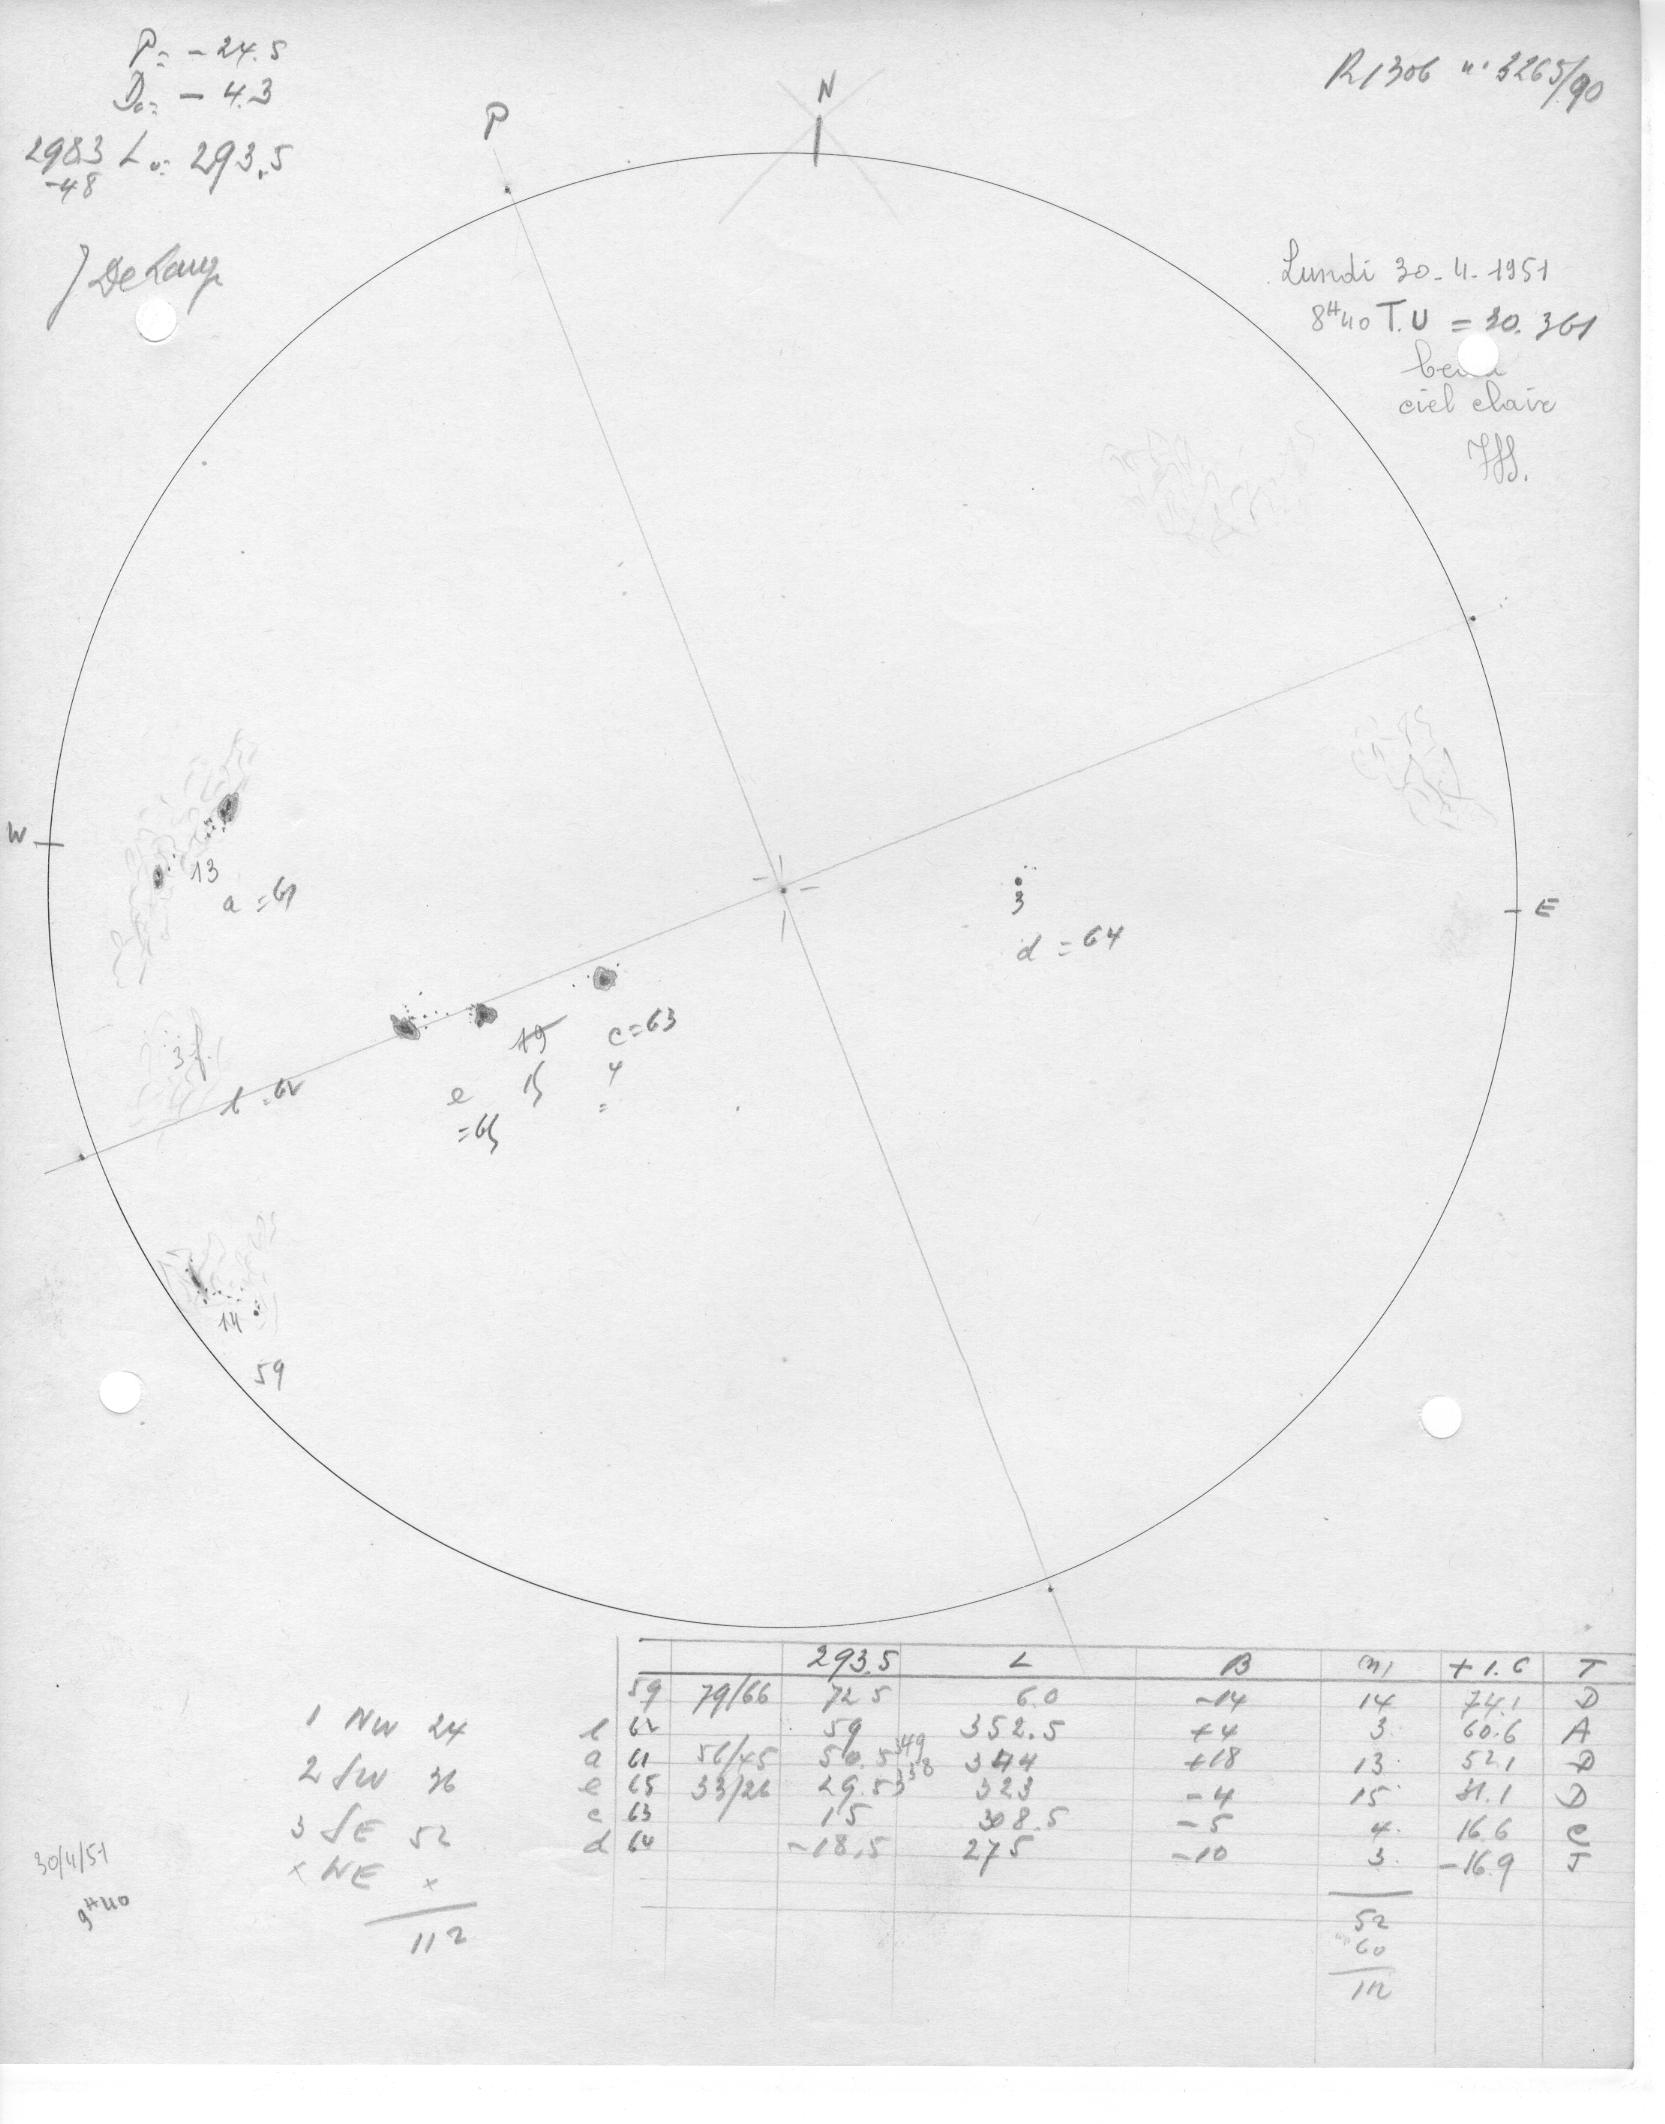 P= -24.5
D₀= -4.3
2983 L₀= 293.5
-48
P
N
R1306 n° 3265/90
Lundi 30-4-1951
8H40 T.U = 30.361
ciel claire
W
13
a = 61
3
d = 64
E
3f
b = 62
19
15
c = 63
4
=
e
= 65
14
59
293.5 L B m + 1.6 T
59 79/66 72.5 6.0 -14 14 74.1 D
b 62 59 352.5 +4 3 60.6 A
a 61 56/45 50.5 349 344 338 +18 13 52.1 D
e 65 33/26 29.5 323 -4 15 31.1 D
c 63 15 308.5 -5 4 16.6 C
d 64 -18.5 275 -10 3 -16.9 J
52
60
112
1 NW 24
2 SW 36
3 SE 52
x NE x
112
30/4/51
9H40